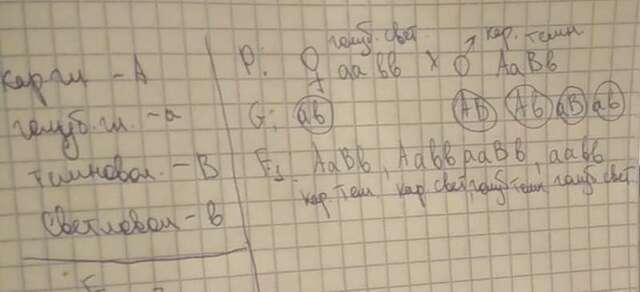 карги - А
голуб. гл. - а
темновол. - В
Светловол - в
Р: ♀ голуб. свет. аа вв × ♂ кар. темн АаВв
G: ав АВ Ав аВ ав
F₁ АаВв, Аавв ааВв, аавв
кар. тем кар. свет, голуб темн, голуб. свет